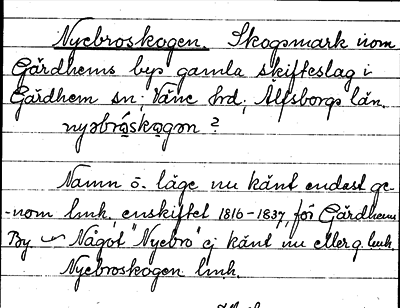 Nyebroskogen. Skogsmark inom
Gärdhems bys gamla skifteslag i
Gärdhem sn; Väne hrd; Älfsborgs län.
nyəbrǫ́skǫgən ?
Namn o. läge nu känt endast ge-
-nom lmh, enskiftet 1816-1837, för Gärdhems
By Något "Nyebro" ej känt nu eller g. lmh.
Nyebroskogen lmh.